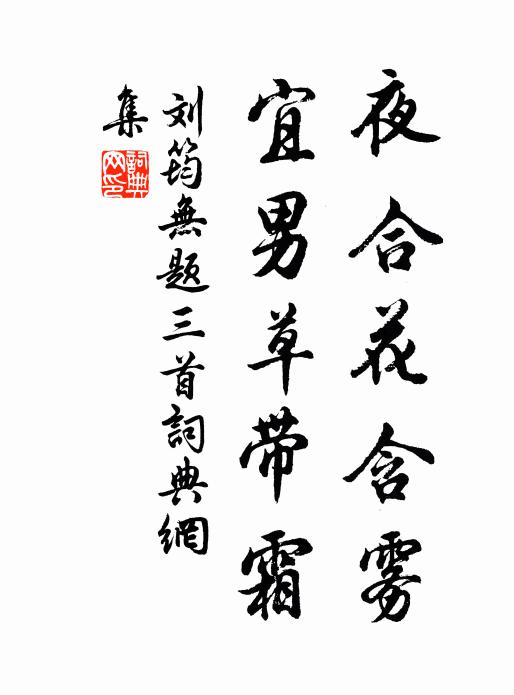 夜合花含雾
宜男草带霜
刘筠無题三首詞典網
集
詞典网印